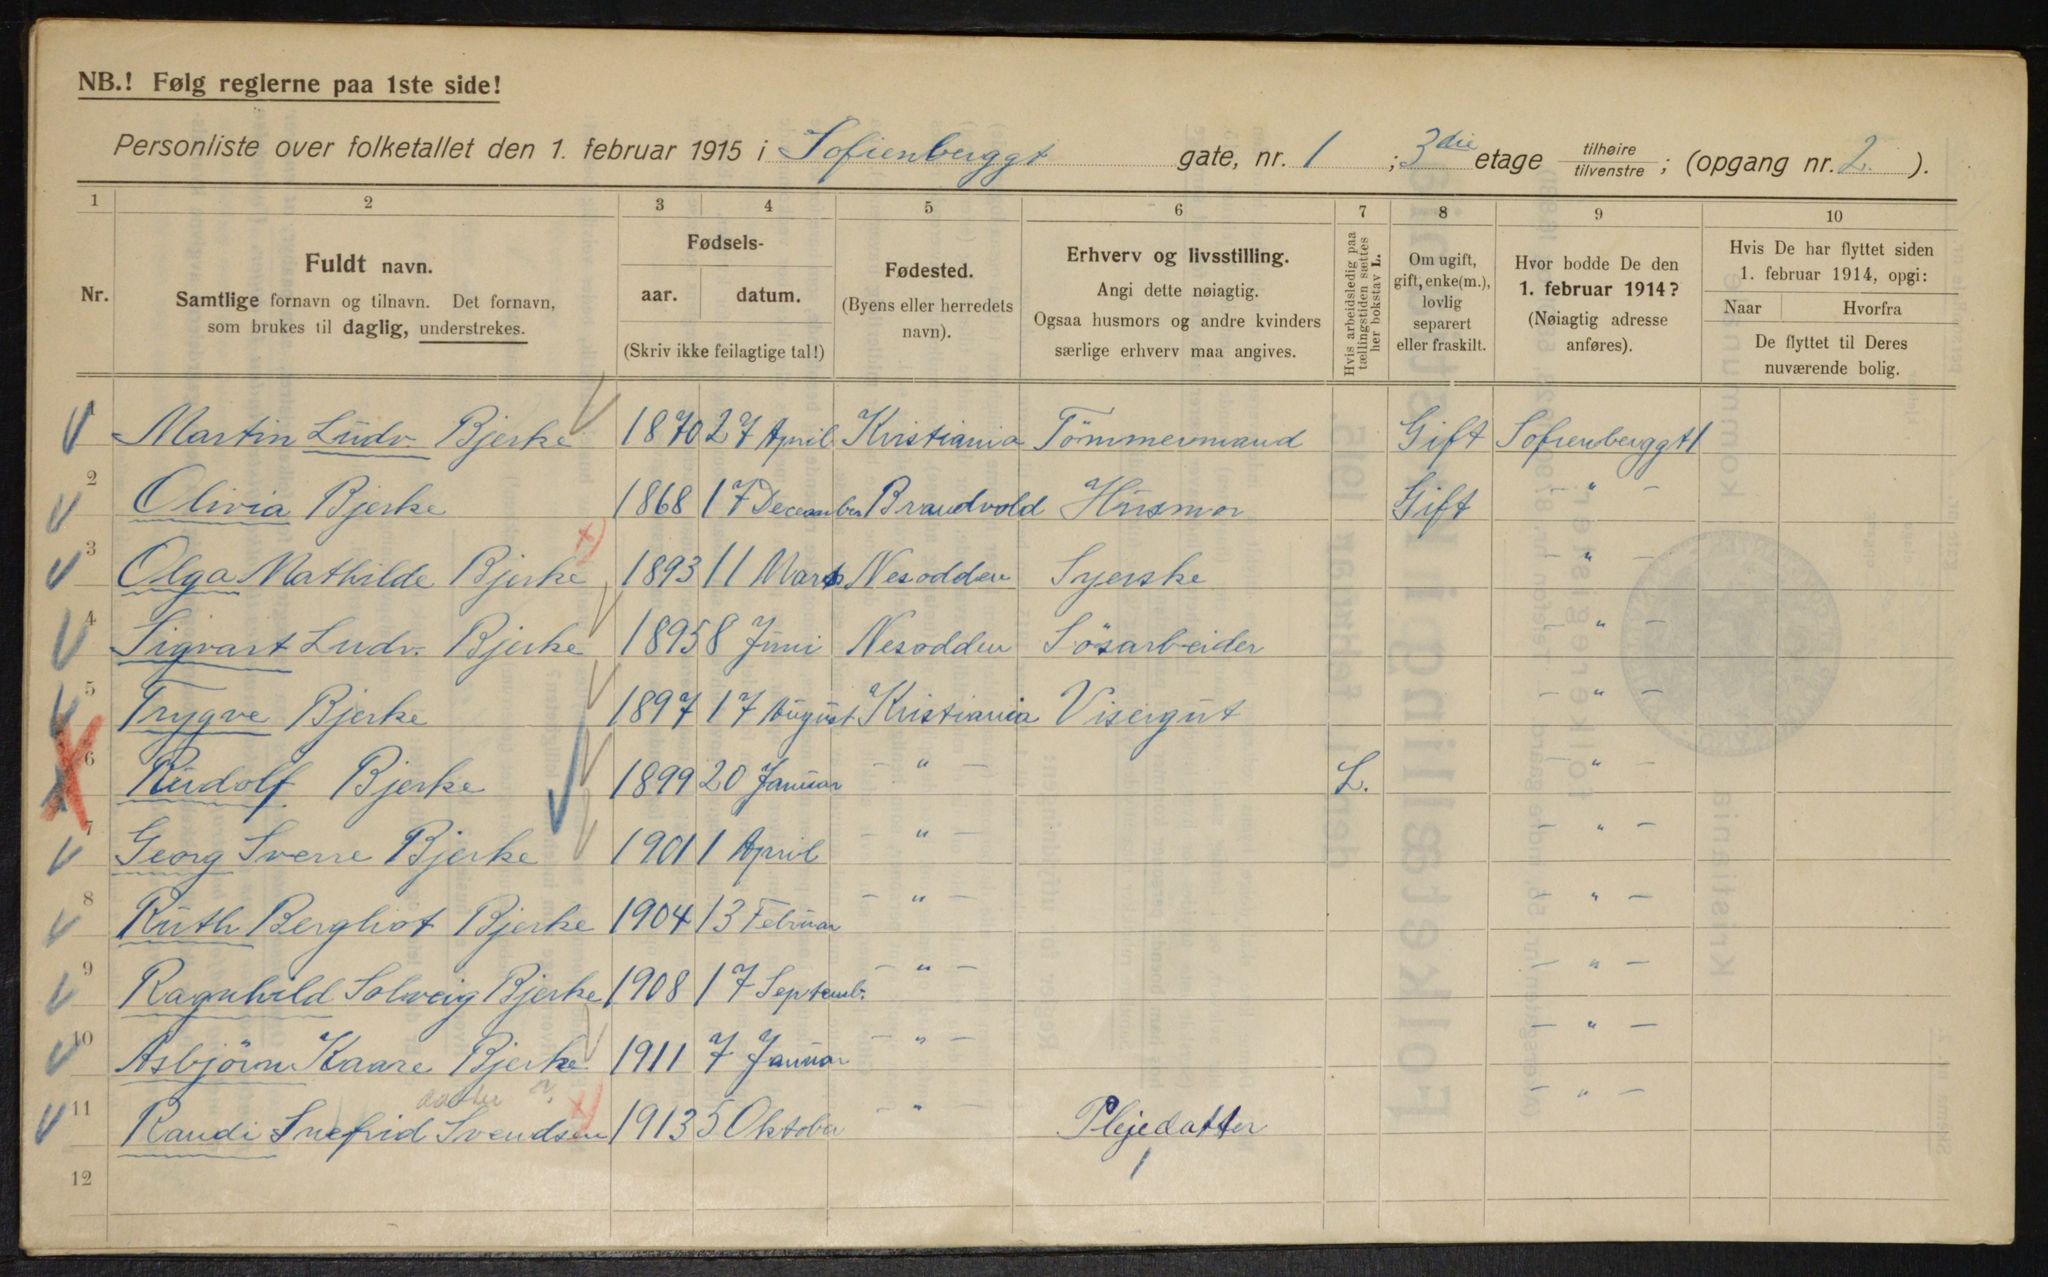 NB.! Følg reglerne paa 1ste side!
Personliste over folketallet den 1. februar 1915 i Sofienberggt gate, nr. 1 ; 3die etage tilhøire / tilvenstre ; (opgang nr. 2 ).
1 2 3 4 5 6 7 8 9 10
Nr.
Fuldt navn.
Samtlige fornavn og tilnavn. Det fornavn,
som brukes til daglig, understrekes.
Fødsels-
aar. datum.
(Skriv ikke feilagtige tal!)
Fødested.
(Byens eller herredets
navn).
Erhverv og livsstilling.
Angi dette nøiagtig.
Ogsaa husmors og andre kvinders
særlige erhverv maa angives.
Hvis arbeidsledig paa
tællingstiden sættes
her bokstav L.
Om ugift,
gift, enke(m.),
lovlig
separert
eller fraskilt.
Hvor bodde De den
1. februar 1914?
(Nøiagtig adresse
anføres).
Hvis De har flyttet siden
1. februar 1914, opgi:
Naar Hvorfra
De flyttet til Deres
nuværende bolig.
1 Martin Ludv. Bjerke 1870 27 April Kristiania Tömmermand Gift Sofienberggt 1
2 Olivia Bjerke 1868 17 December Brandvold Husmor Gift — " —
3 Olga Mathilde Bjerke 1893 11 Marts Nesodden Syerske — " —
4 Sigvart Ludv. Bjerke 1895 8 Juni Nesodden Sösarbeider — " —
5 Trygve Bjerke 1897 17 August Kristiania Visergut — " —
6 Rudolf Bjerke 1899 20 Januar — " — L. — " —
7 Georg Sverre Bjerke 1901 1 April — " — — " —
8 Ruth Bergliot Bjerke 1904 13 Februar — " — — " —
9 Ragnhild Solveig Bjerke 1908 17 Septemb. — " — — " —
10 Asbjörn Kaare Bjerke 1911 7 Januar — " — — " —
11 Randi Snefrid Svendsen 1913 5 Oktober — " — Plejedatter — " —
1
12